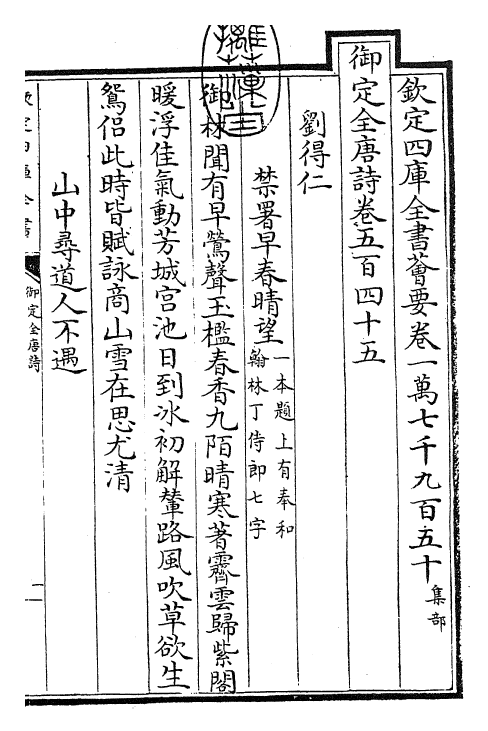 欽定四庫全書薈要卷一萬七千九百五十集部
御定全唐詩卷五百四十五
劉得仁
禁署早春晴望一本題上有奉和翰林丁侍郎七字
御林聞有早鶯聲玉檻春香九陌晴寒著霽雲歸紫閣
暖浮佳氣動芳城宫池日到冰初解輦路風吹草欲生
鴛侣此時皆賦詠商山雪在思尤清
山中尋道人不遇
御定全唐詩